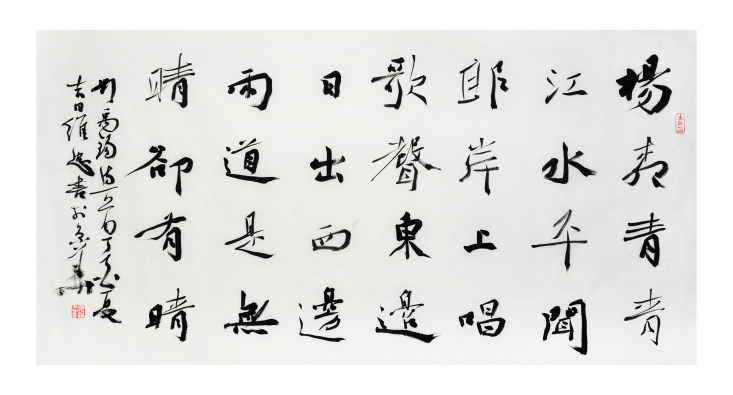 楊柳青青
江水平聞
郎岸上唱
歌聲東邊
日出西邊
雨道是無
晴卻有晴
劉禹錫詩 夏
吉日維忠書於京華